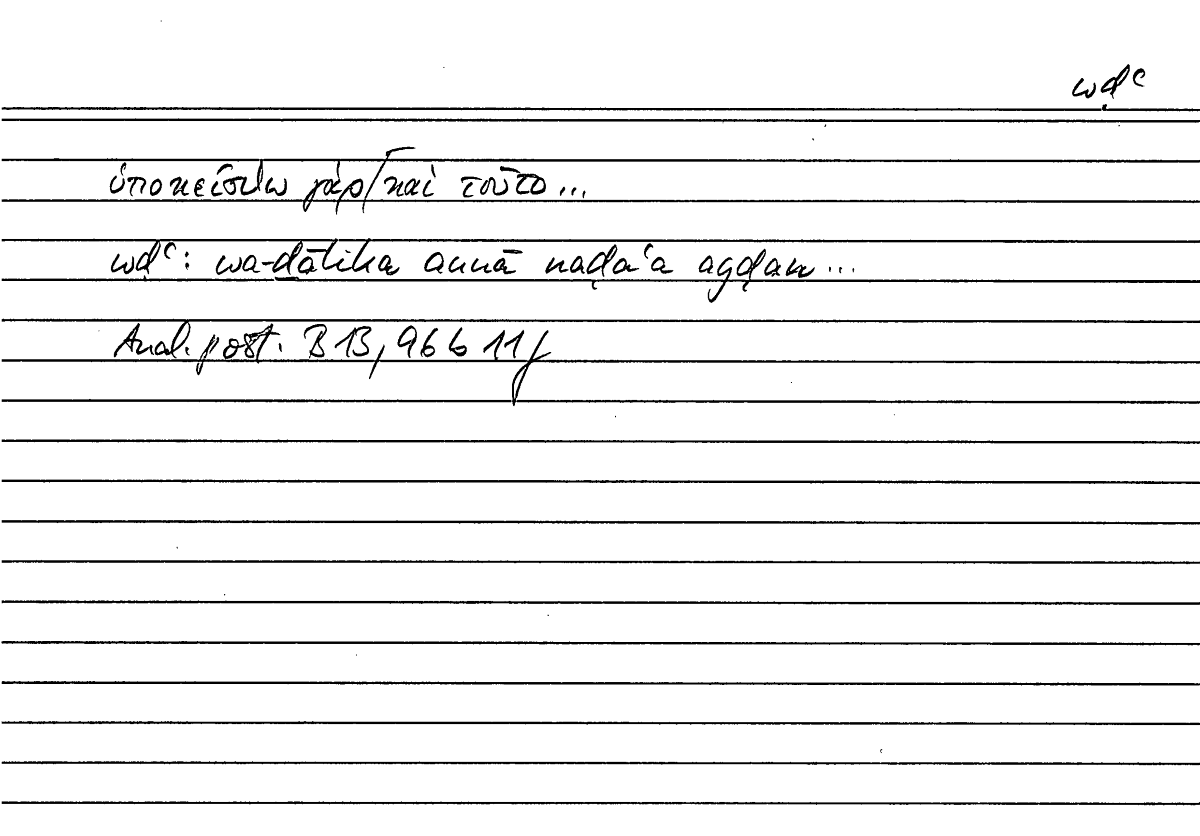 wḍʿ
ὑποκείσθω γάρ/καὶ τοῦτο...
wḍʿ: wa-ḏālika annā naḍaʿa ayḍan...
Anal. post. B 13, 96 b 11f